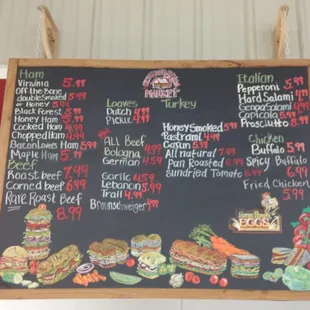 MARKET
Ham
Virginia 5.99
Off the bone
double smoked
or Honey 5.99
Black Forest 5.99
Honey Ham 5.99
Cooked Ham 4.99
Chopped Ham 4.99
Bacon Lovers Ham 5.99
Maple Ham 5.99
Beef
Roast beef 7.99
Corned beef 6.99
Rare Roast
8.99
Loaves
Dutch 4.99
Pickle 4.99
ALL Beef
Bologna 4.99
German 4.59
Garlic 4.59
Lebanon 5.99
Trail 4.99
Turkey
Honey Smoked 5.99
Pastrami 5.99
Cajun 5.99
All natural 7.99
Pan Roasted 6.99
Sundried Tomato 6.99
Italian
Pepperoni 5.99
Hard Salami 5.99
Genoa Salami 5.99
Capicola 5.99
Prosciutto 8.99
Chicken
Buffalo 5.99
Spicy Buffalo
6.99
Fried Chicken
5.99